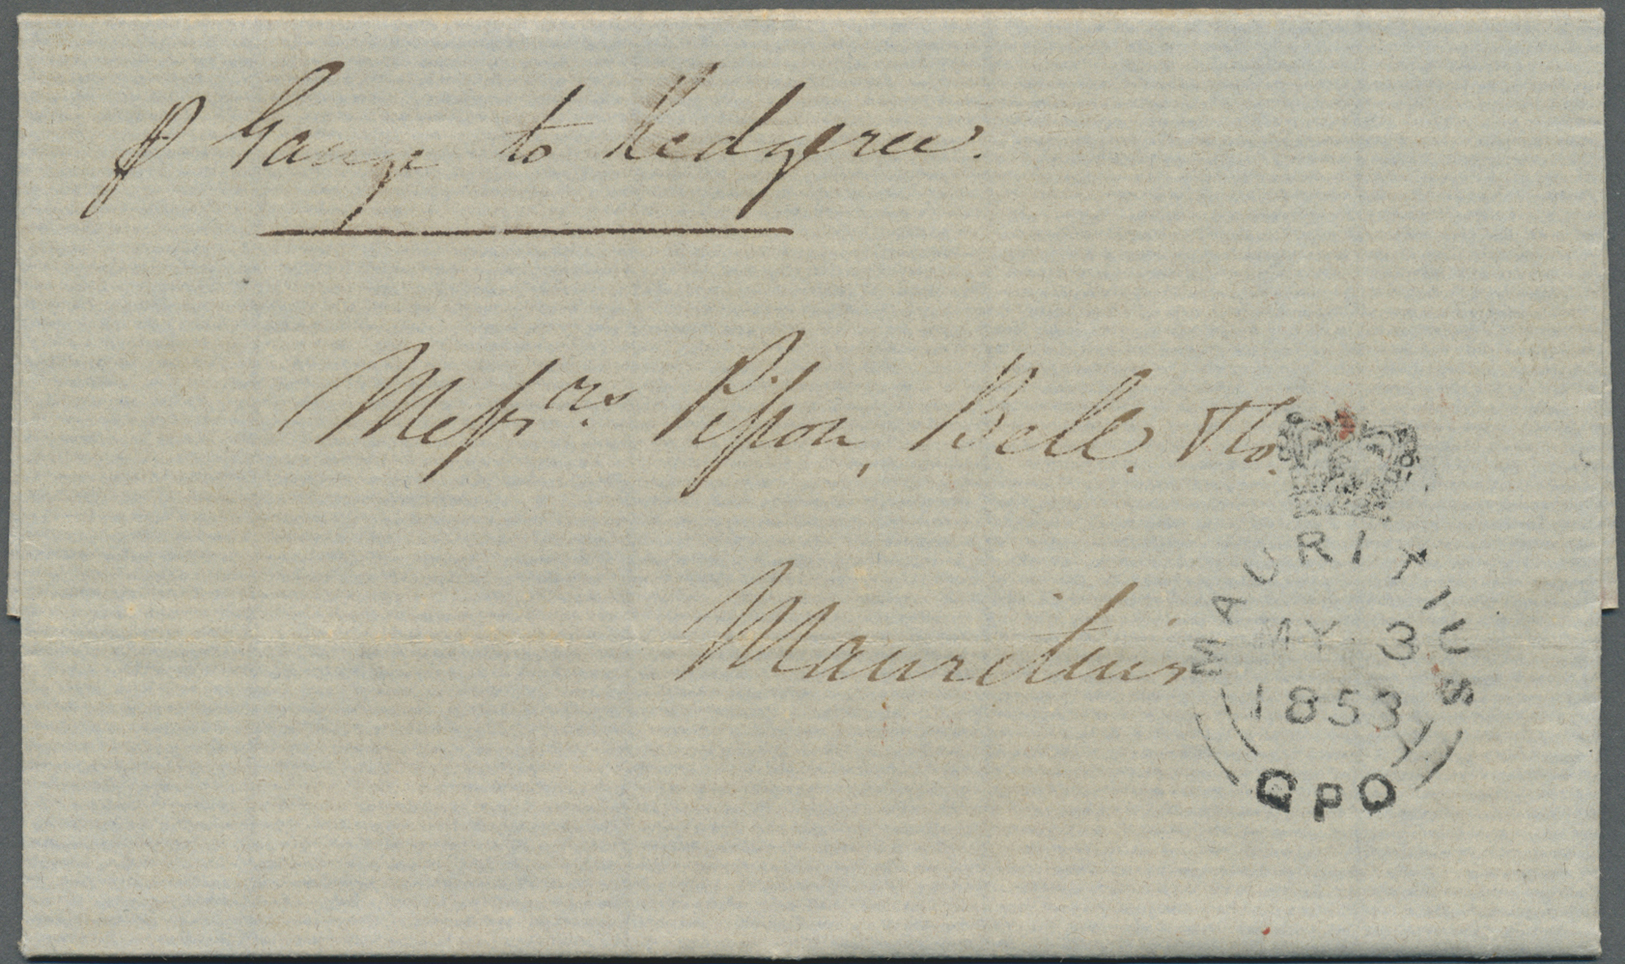 p Gange to Kedgeree.
Messrs. Pipon, Bell. & Co.
Mauritius
MAURITIUS
MY 3
1853
GPO